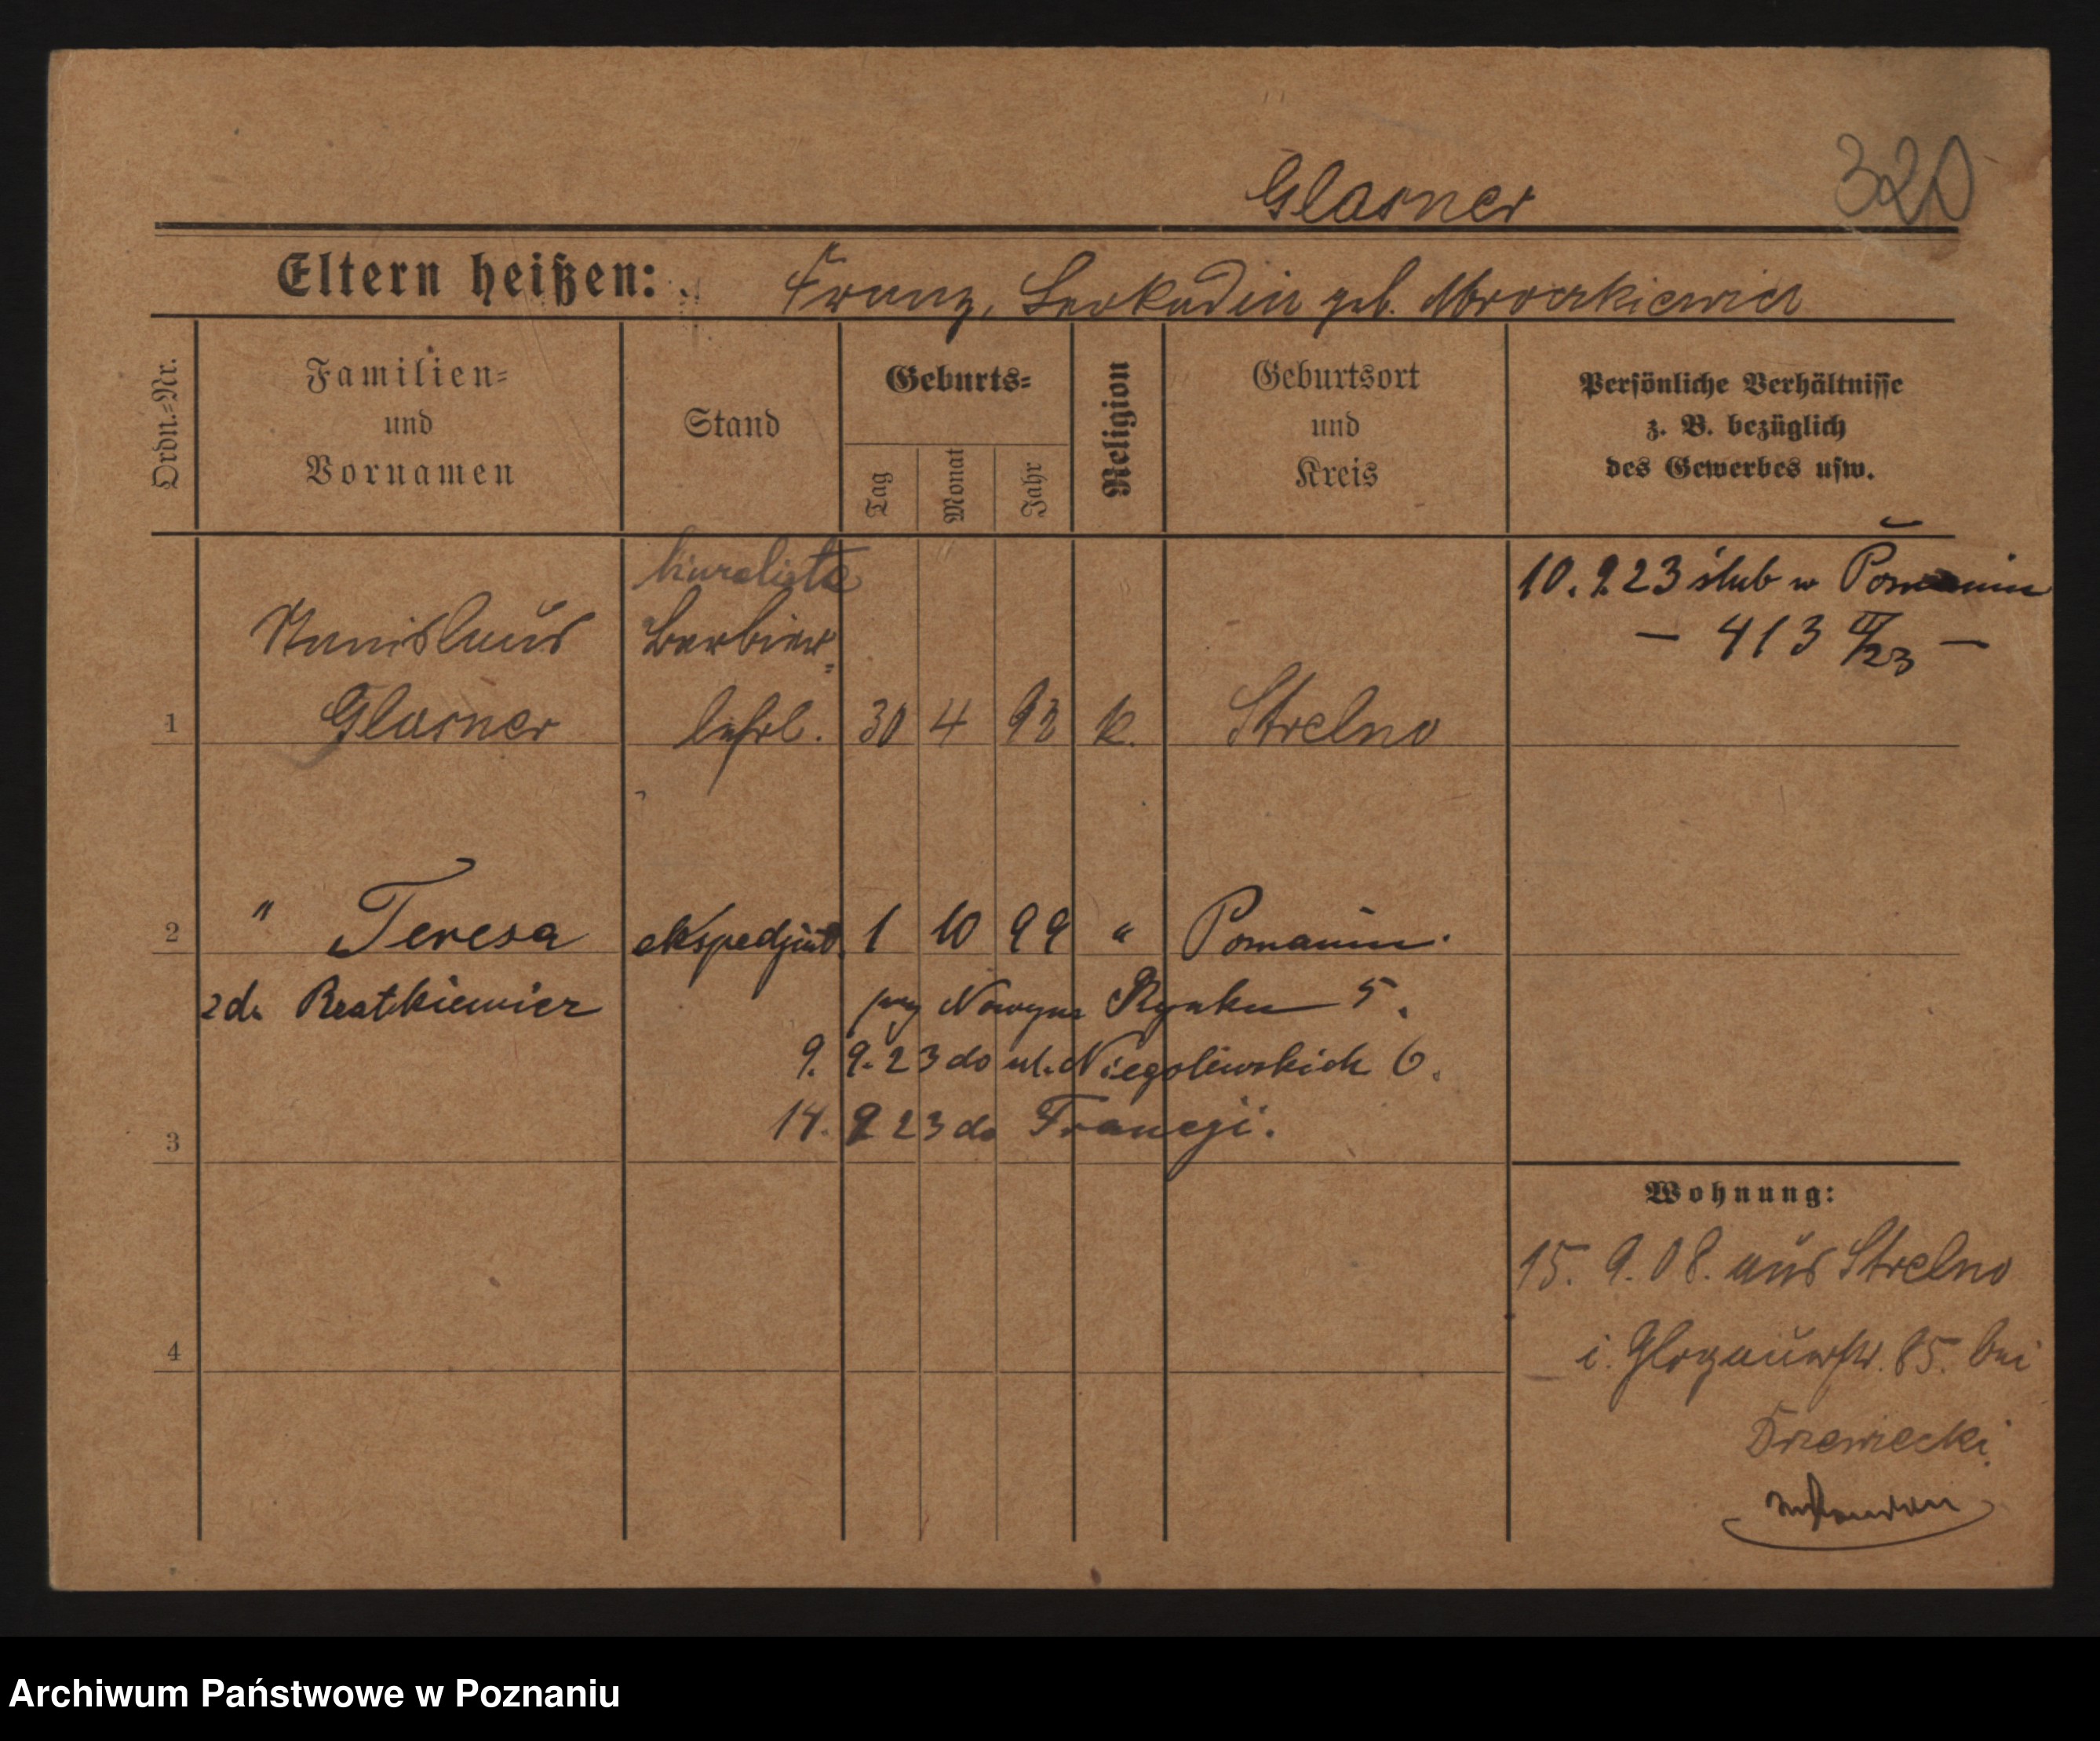 Glasner
320
Eltern heißen: Franz, Leokadia geb. Mroczkiewicz
Ordn.-Nr.
Familien- und Vornamen
Stand
Geburts-
Tag
Monat
Jahr
Religion
Geburtsort und Kreis
Persönliche Verhältnisse z. B. bezüglich des Gewerbes usw.
biuralista
10. 9 23 ślub w Poznaniu
Stanislaus Barbier-
— 413 II/23 —
1 Glasner lehrl. 30 4 92 k. Strelno
2 " Teresa ekspedjent. 1 10 99 " Poznaniu.
zd. Bratkiewicz
przy Nowym Rynku 5.
9. 9. 23 do ul. Niegolewskich 6.
14. 9 23 do Francji.
3
Wohnung:
15. 9. 08. aus Strelno
i. Glogauerstr. 85. bei
4
Drzewiecki
Archiwum Państwowe w Poznaniu